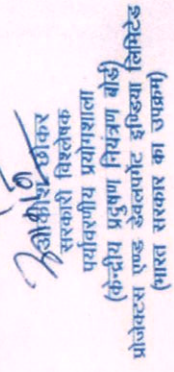 आकाश ठाकर
सरकारी विश्लेषक
पर्यावरणीय प्रयोगशाला
(केन्द्रीय प्रदुषण नियंत्रण बोर्ड)
प्रोजेक्टस एण्ड डेवलपमेंट इण्डिया लिमिटेड
(भारत सरकार का उपक्रम)